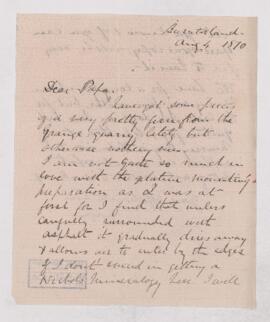 Burntisland
Aug 4 1870
Dear Papa
I have got some pieces
of very pretty from the
Grange quarry lately but
otherwise nothing new.
I am not quite so much in
love with the platina mounting
preparation as I was at
first for I find that unless
carefully surrounded with
asphalt it gradually dries away
& allows air to enter by the edges
If I don't succeed in getting a
Nichols Mineralogy here I will